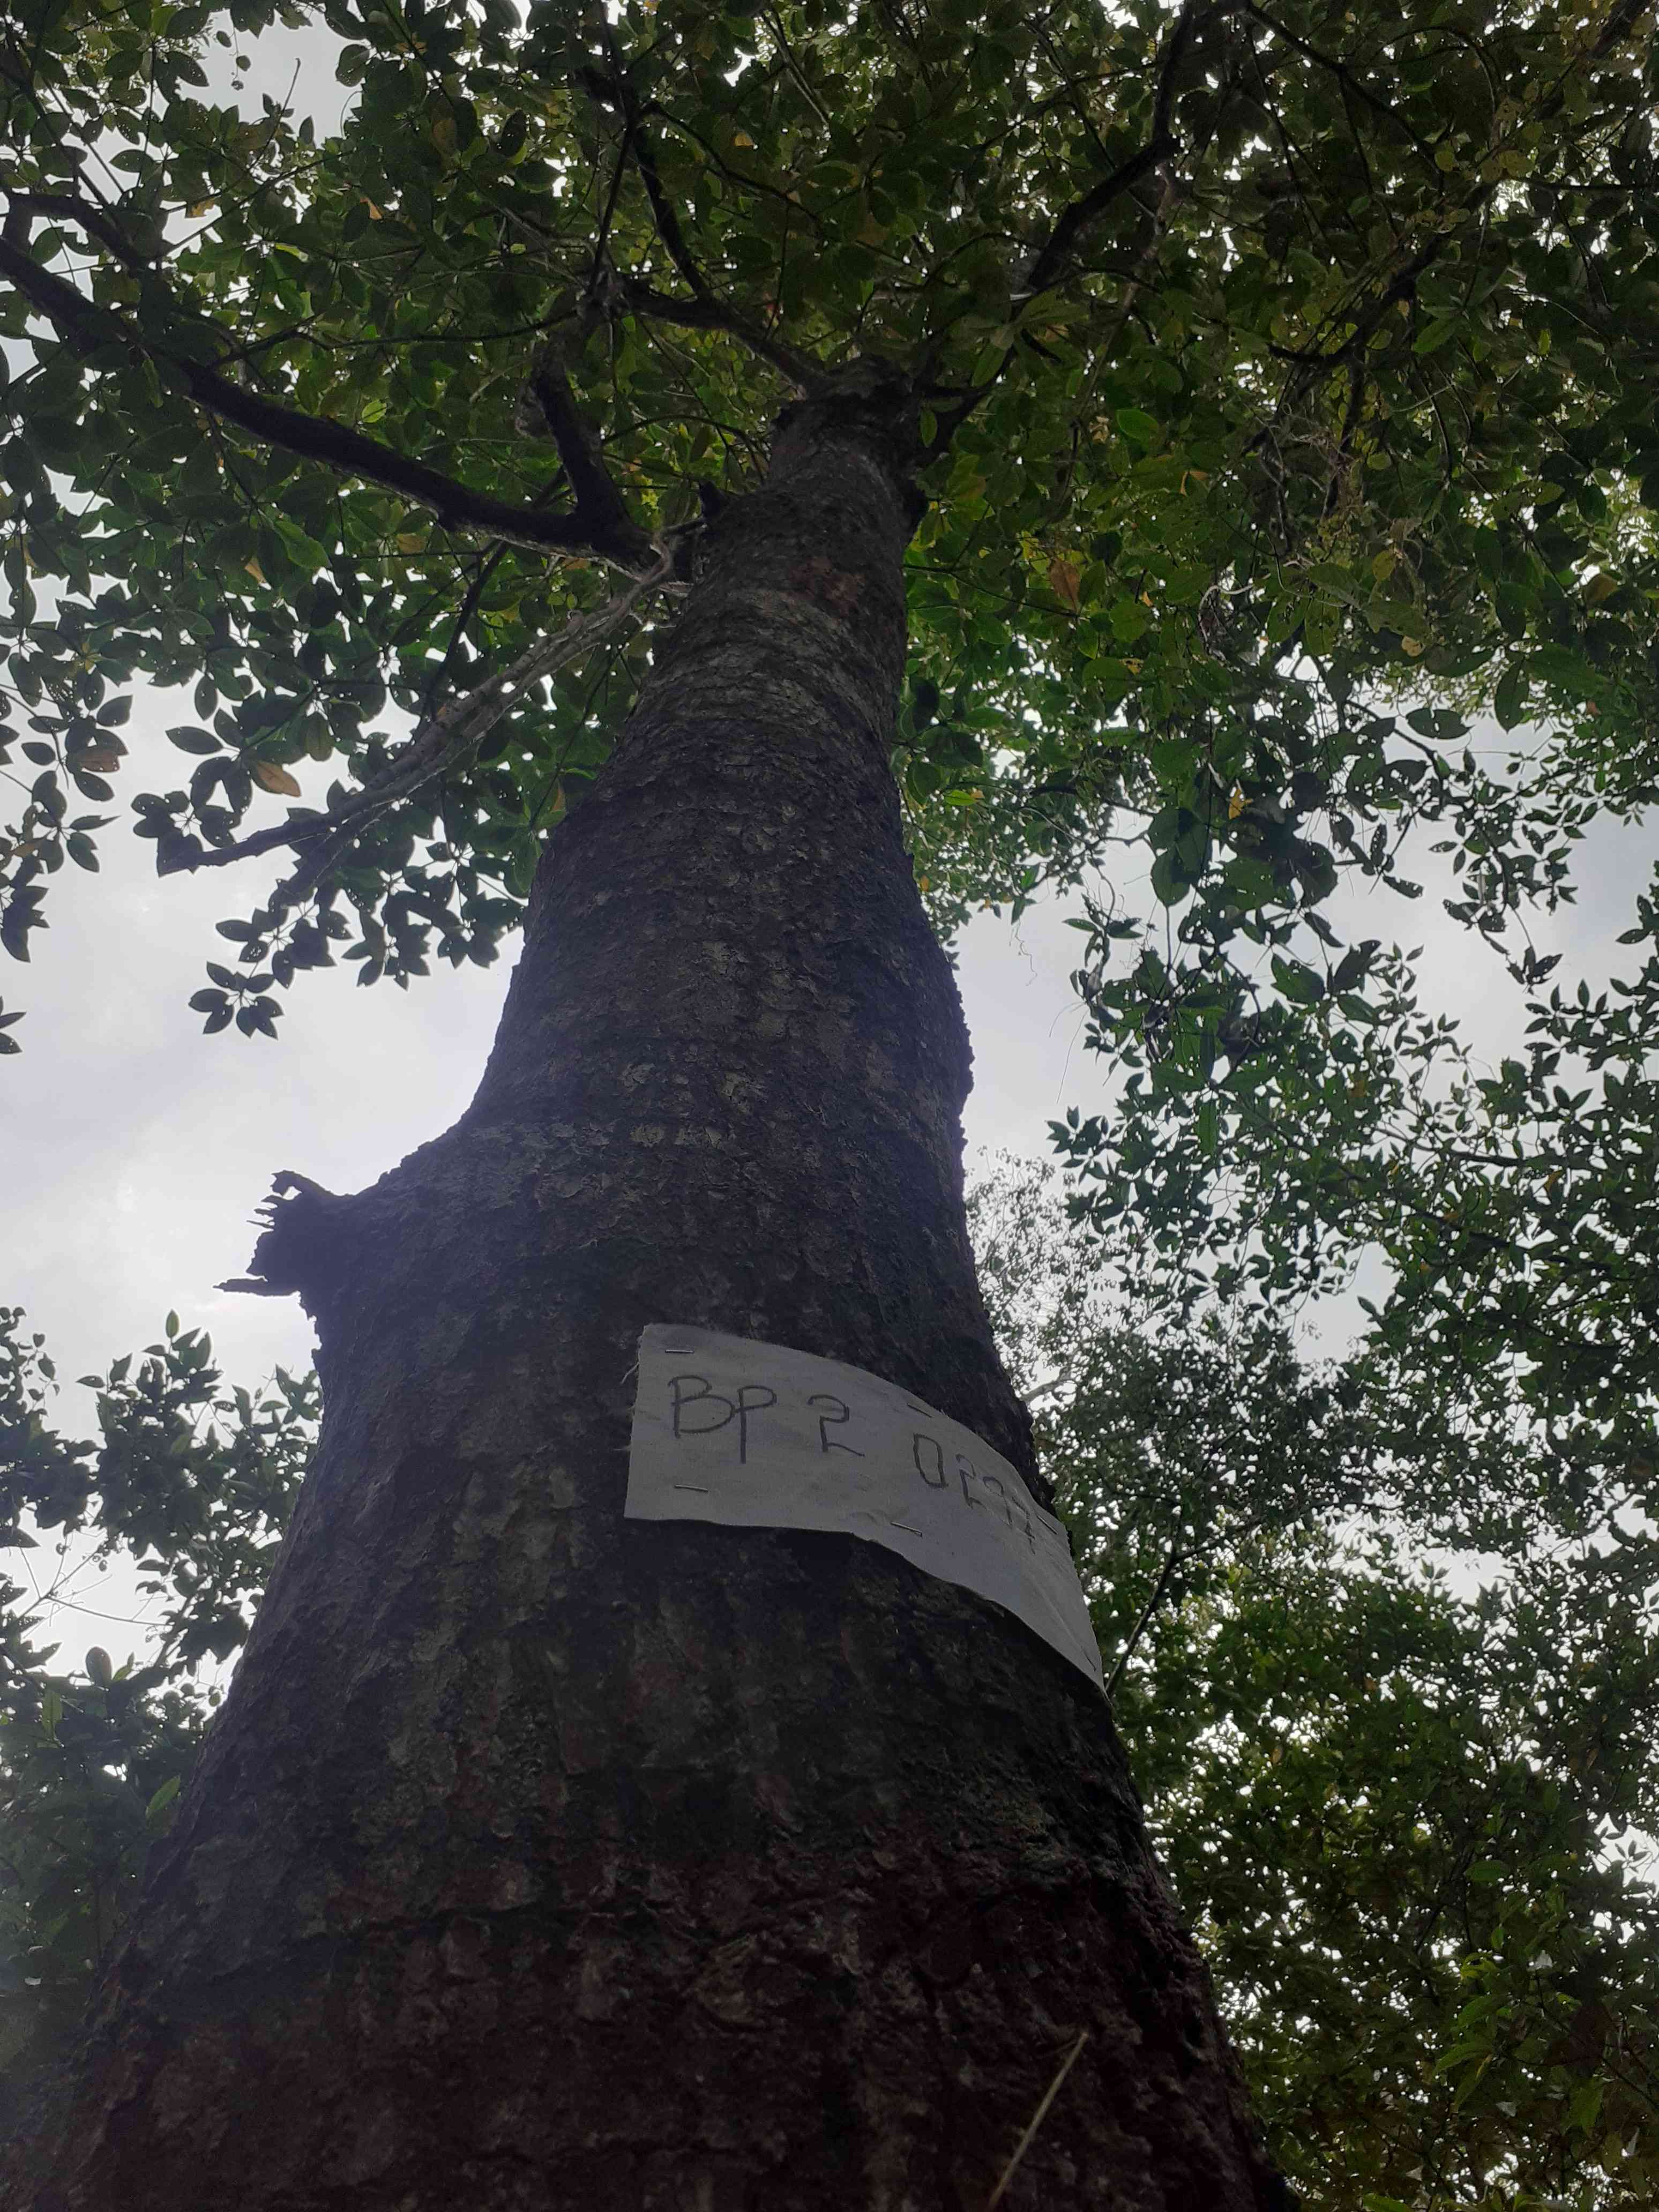 BP 2 0297